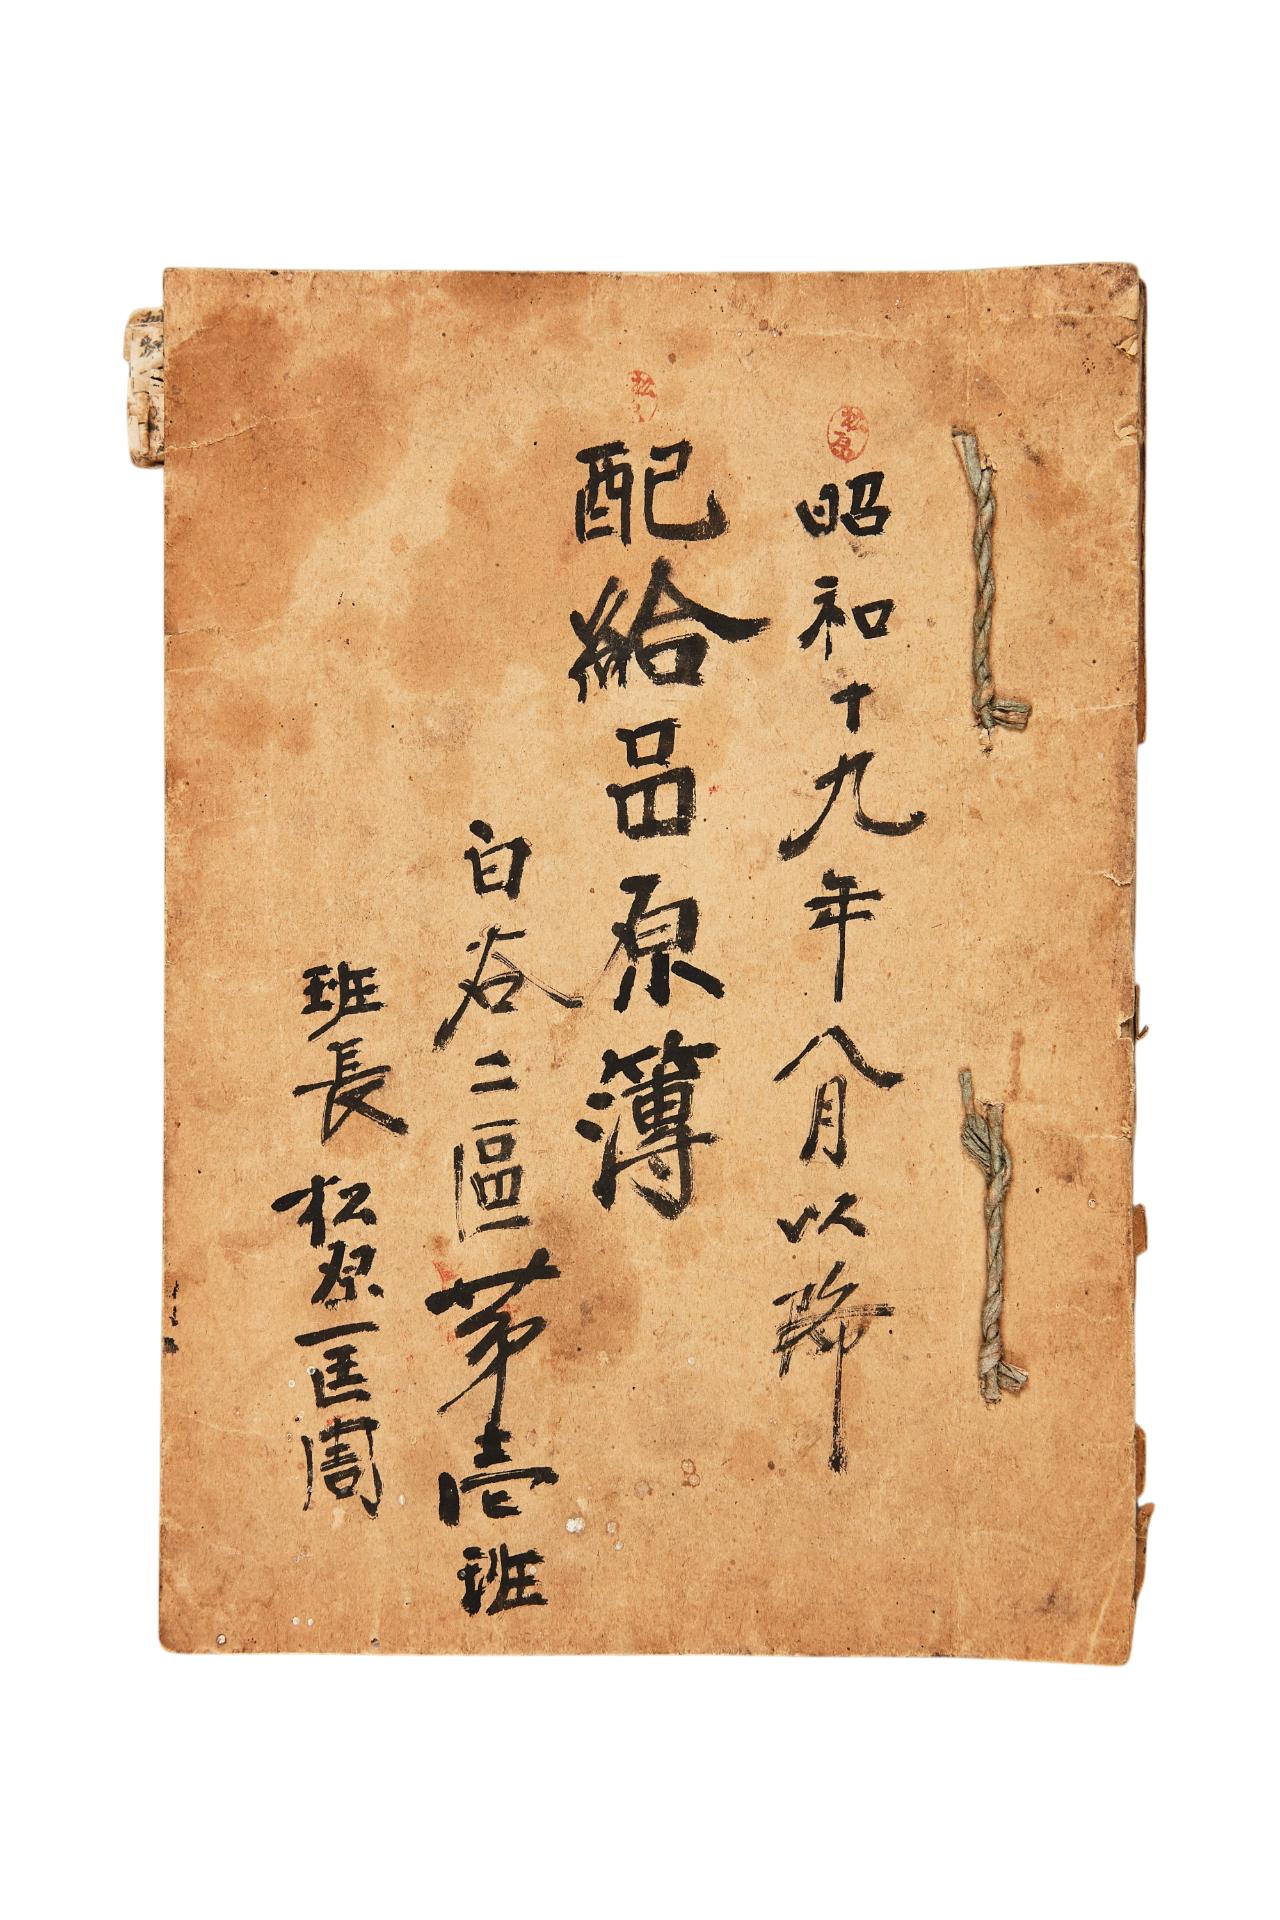 昭和十九年八月以降
配給品原簿
白谷二區第壱班
班長 松原匡
松原